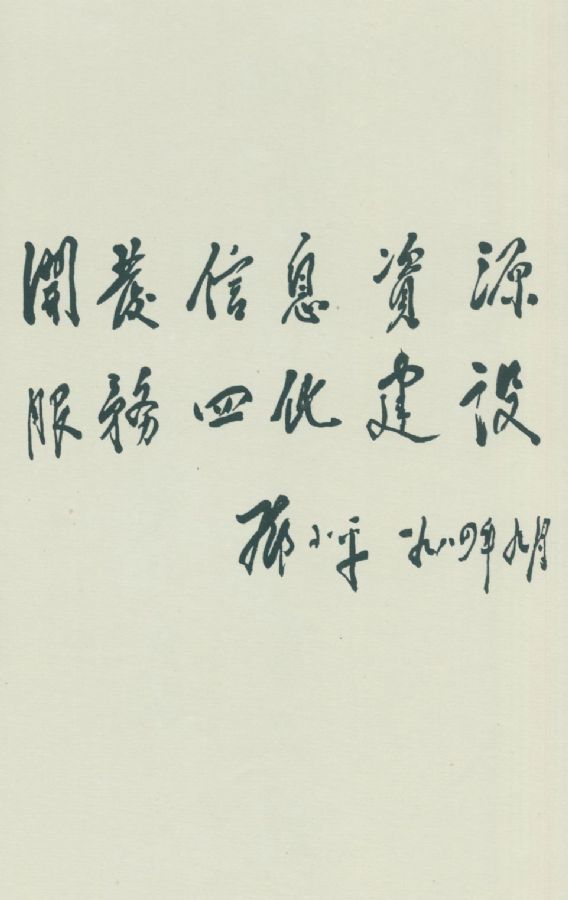 開發信息資源
服務四化建設
鄧小平 一九八四年九月